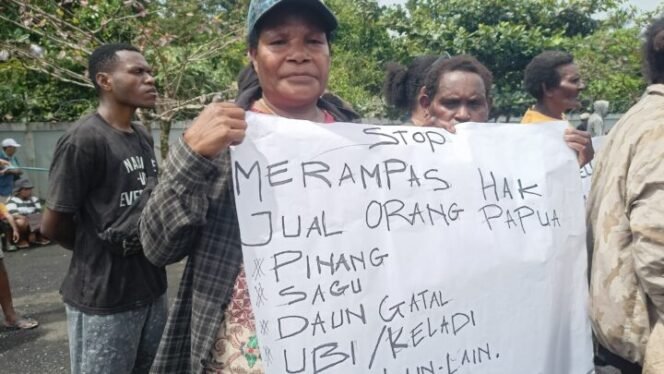 STOP
MERAMPAS HAK
JUAL ORANG PAPUA
* PINANG
* SAGU
* DAUN GATAL
* UBI/KELADI
LAIN-LAIN.